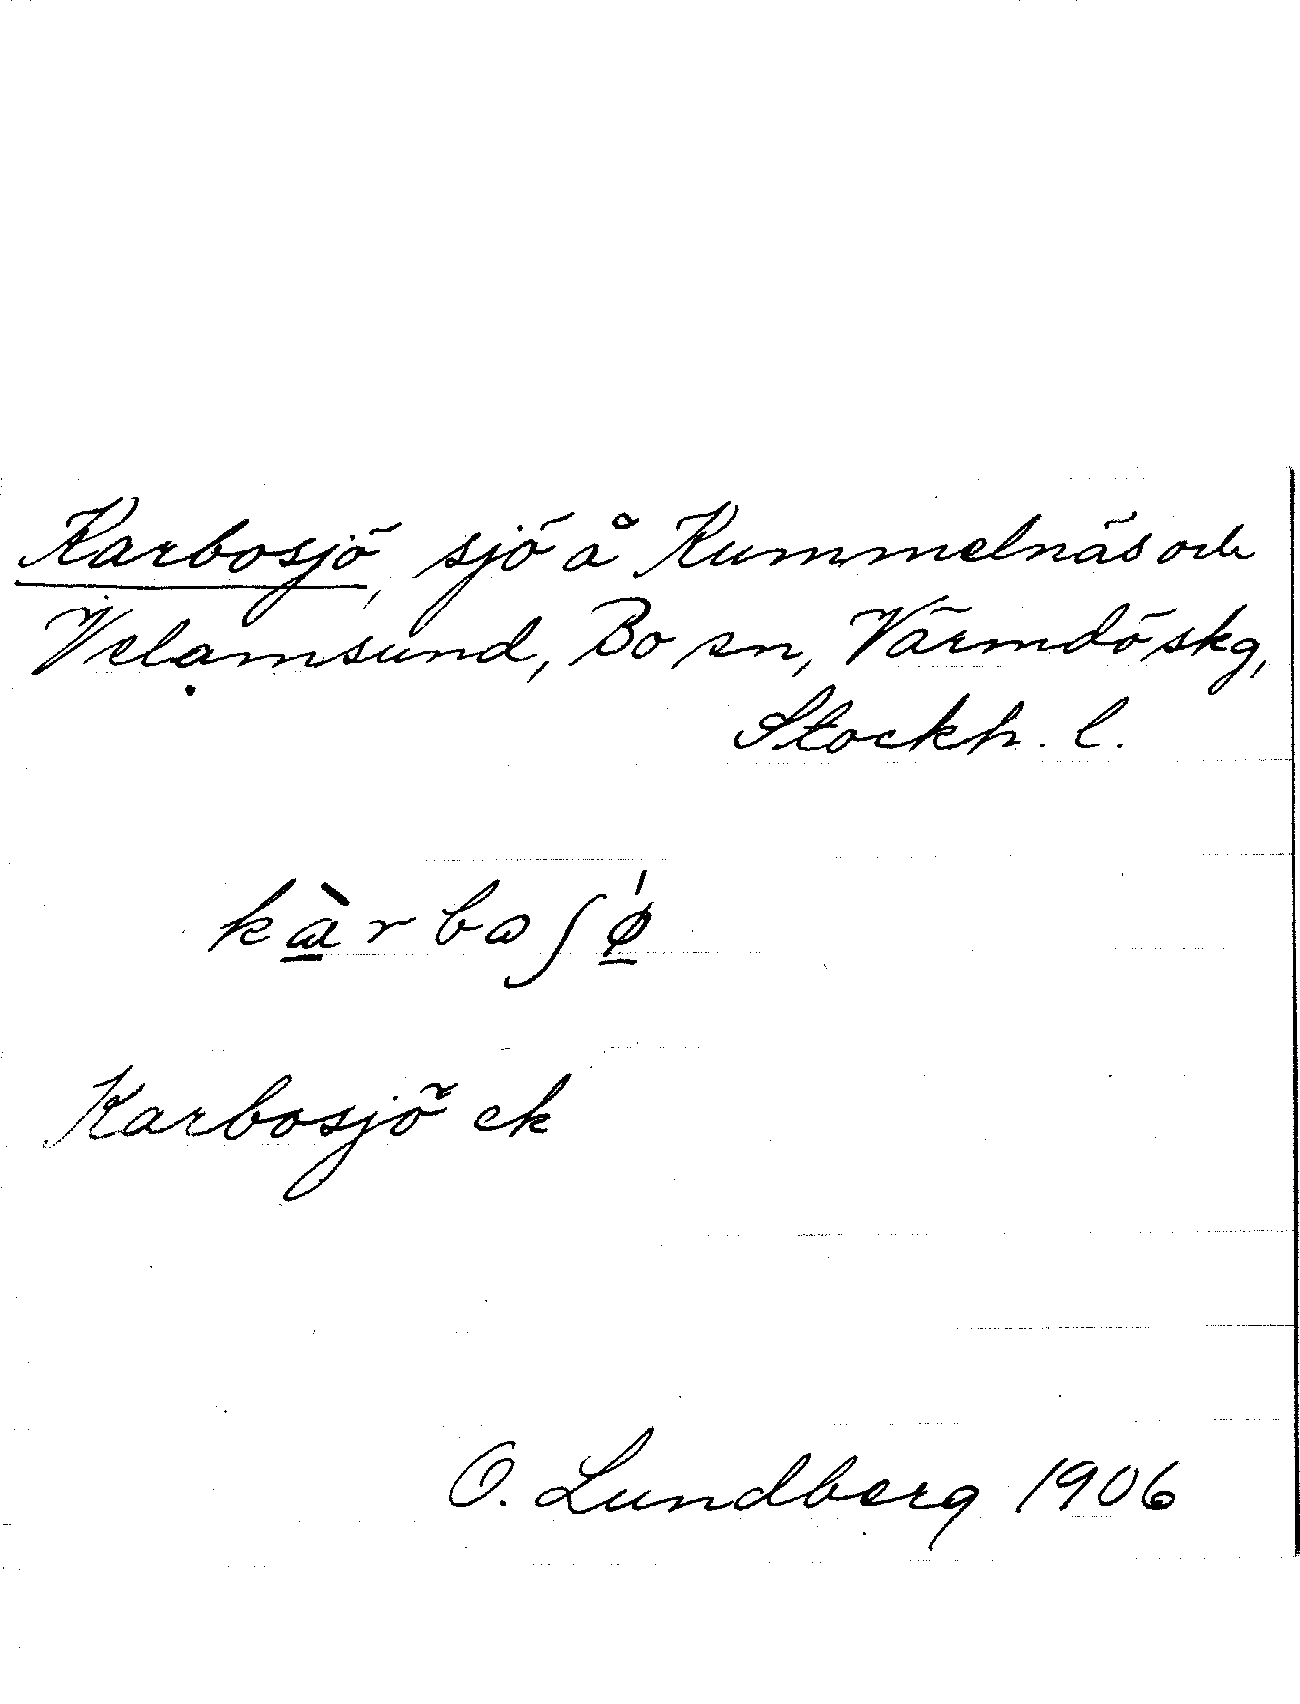 Karbosjö, sjö å Kummelnäs och
Velamsund, Bo sn, Värmdö skg,
Stockh. l.
kàrboʃǿ
Karbosjö ek
O. Lundberg 1906